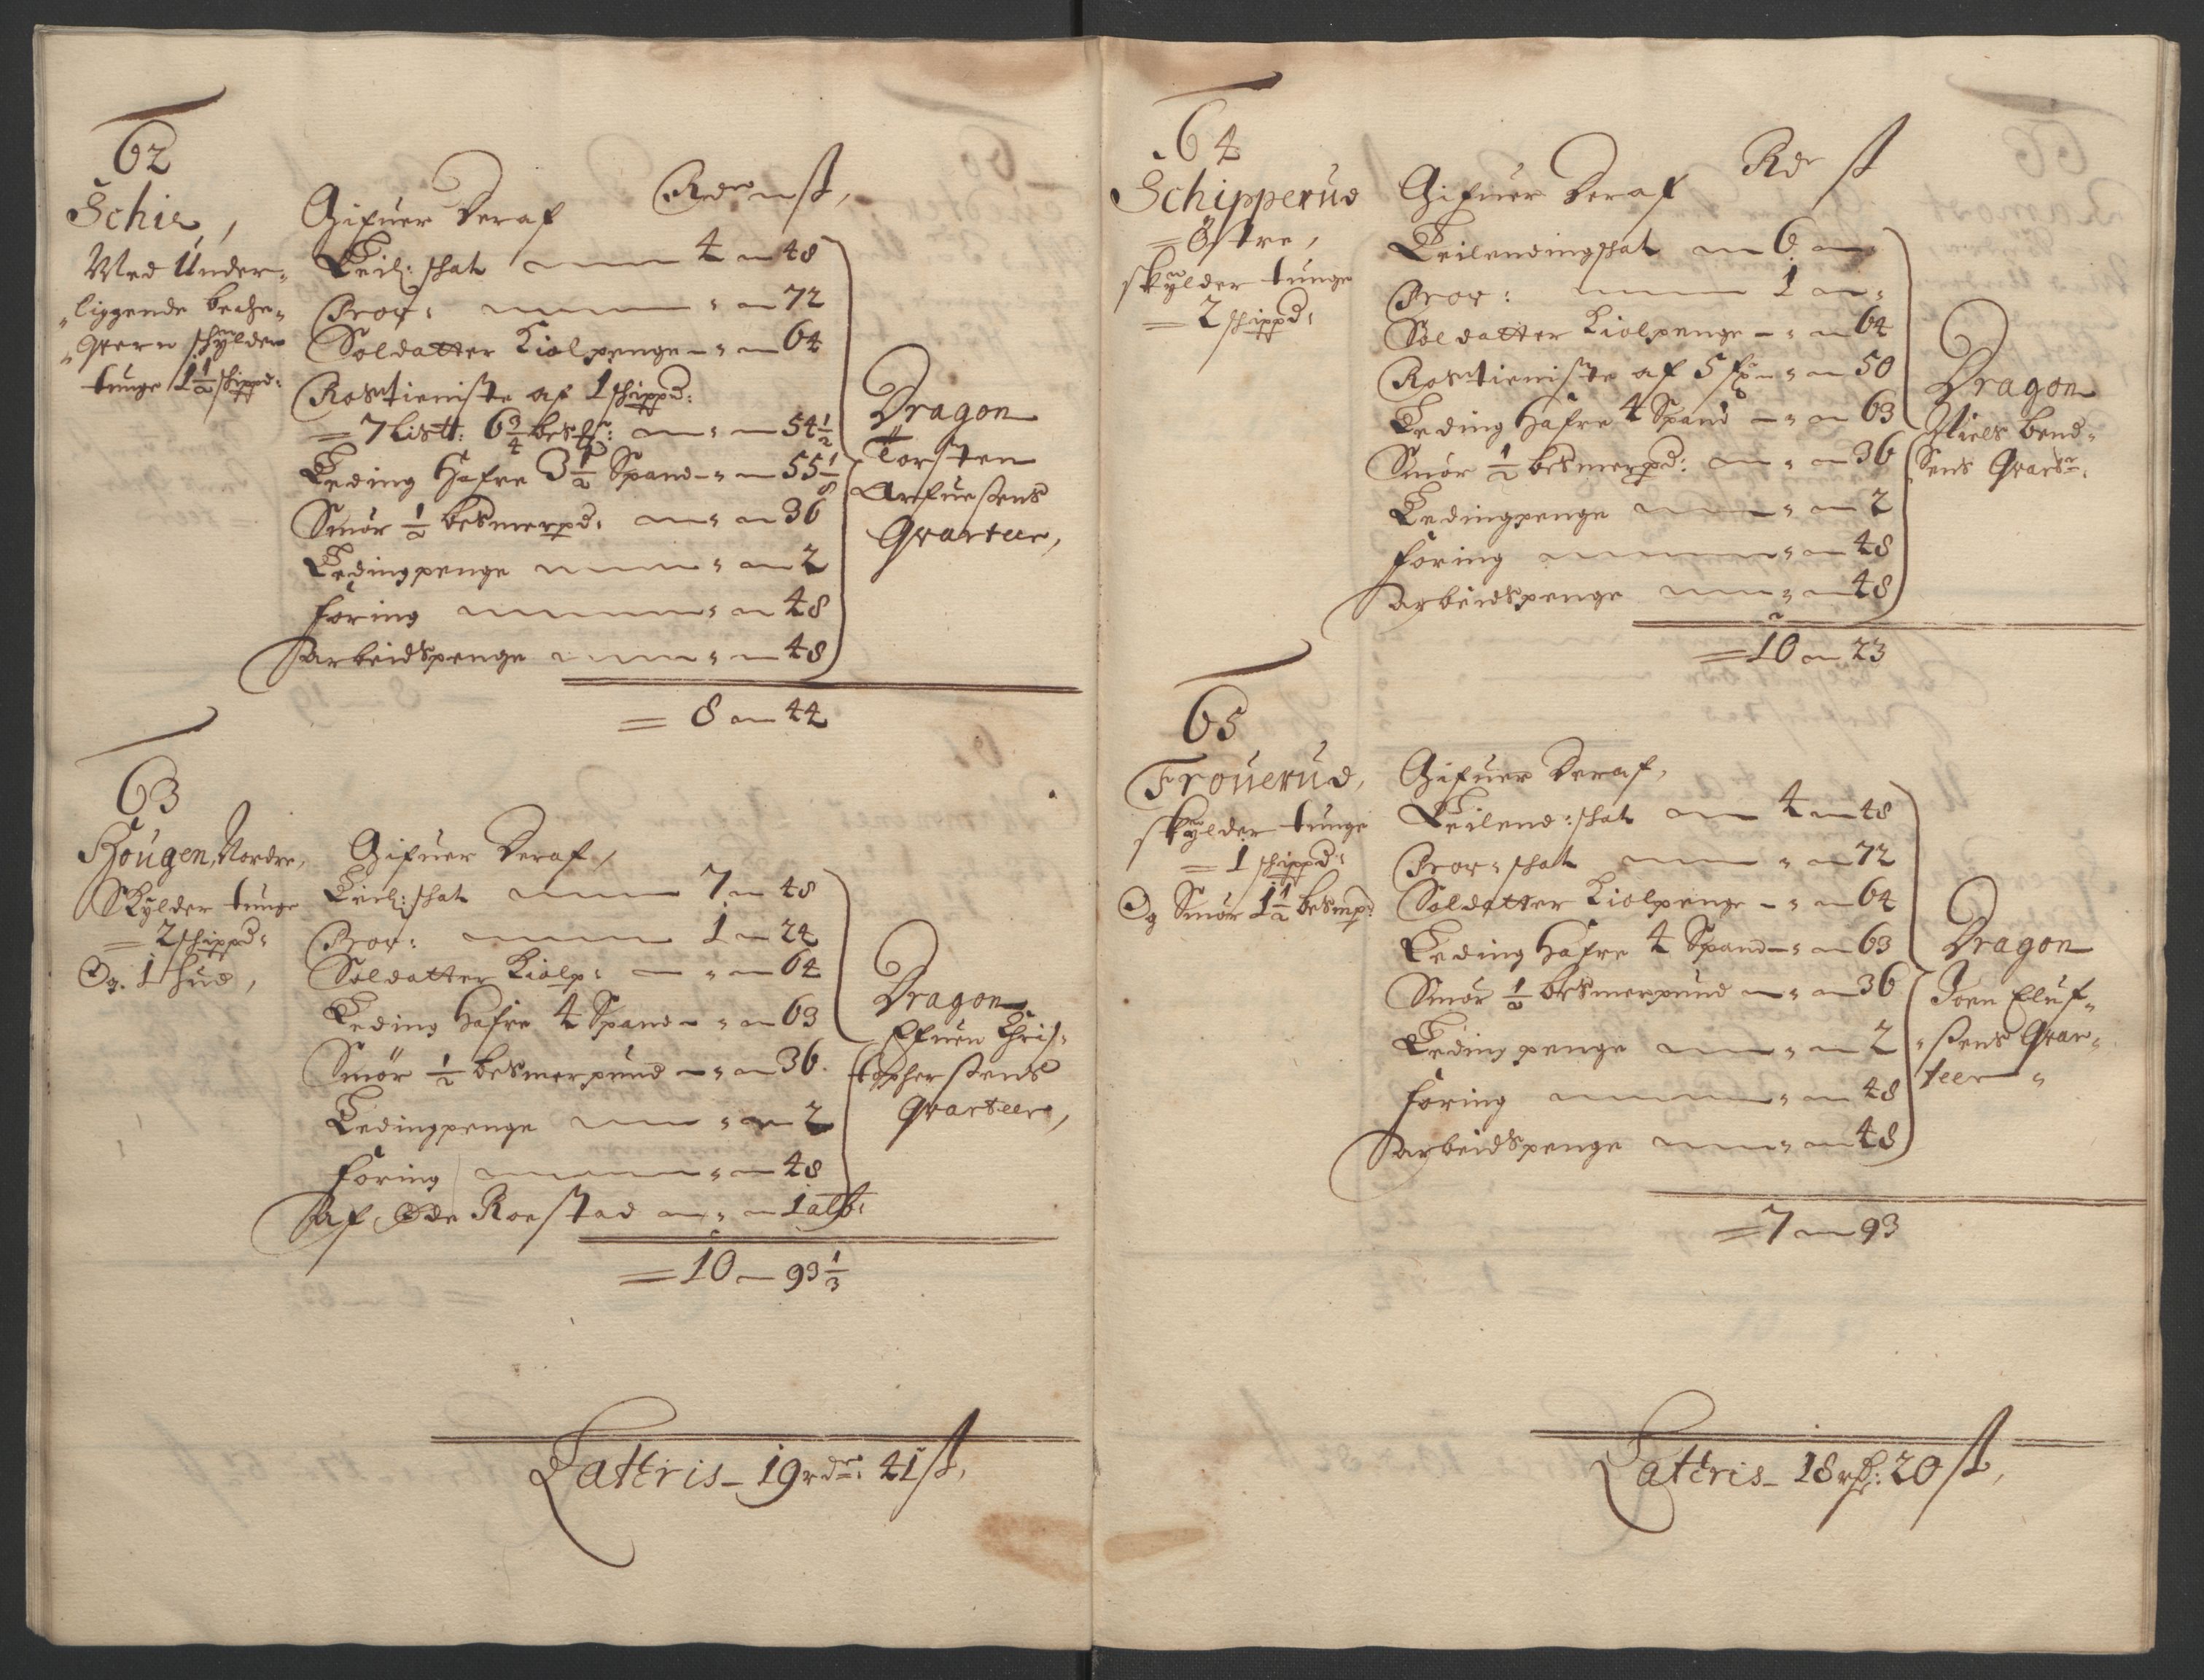 62
Schie,
Med Under-
liggende beche-
qvern schylder
tunge 1 1/2 schippd:
Gifuer Deraf Rdr ſt,
Leil: schat 4 48
Prov: " 72
Soldatter Kiolpenge " 64
Rostieniste af 1 schippd:
7 List: 6 3/4 " 54 1/2
Leding Hafre 3 1/2 Spand " 55 1/8
Smør 1/2 besmerpd: " 36
Ledingpenge " 2
foring " 48
Arbeidspenge " 48
Dragon
Torsten
Arfuesens
Qvarteer,
8 44
63
Hougen, Nordre,
Skylder tunge
2 schippd:
Og 1 hud,
Gifuer Deraf,
Leil: schat 7 48
Prov: 1 24
Soldatter Kiolp: " 64
Leding Hafre 4 Spand " 63
Smør 1/2 besmerpund " 36
Ledingpenge " 2
foring " 48
Af Øde Roestad " 1 alb:
Dragon
Efuen Chris-
tophersens
Qvarteer,
10 93 1/3
Latteris 19 rdr: 41 ſt,
64
Schipperud
Östre,
skylder tunge
2 schippd:
Gifuer Deraf Rdr ſt
Leilendingschat 6 "
Prov: 1 "
Soldatter Kiolpenge " 64
Rostieniste af 5 " 50
Leding Hafre 4 Spand " 63
Smør 1/2 besmerpd: " 36
Ledingpenge " 2
foring " 48
Arbeidspenge " 48
Dragon
Niels Bend-
sens Qvartr.
10 23
65
Frouerud,
skylder tunge
1 schippd:
Og Smør 1 1/2 besmpd:
Gifuer Deraf,
Leilend: schat 4 48
Prov: schat " 72
Soldatter Kiolpenge " 64
Leding Hafre 4 Spand " 63
Smør 1/2 besmerpund " 36
Leding penge " 2
foring " 48
Arbeidspenge " 48
Dragon
Joen Eluf-
sens Qvar-
teer
7 93
Latteris 18 rdr: 20 ſt,